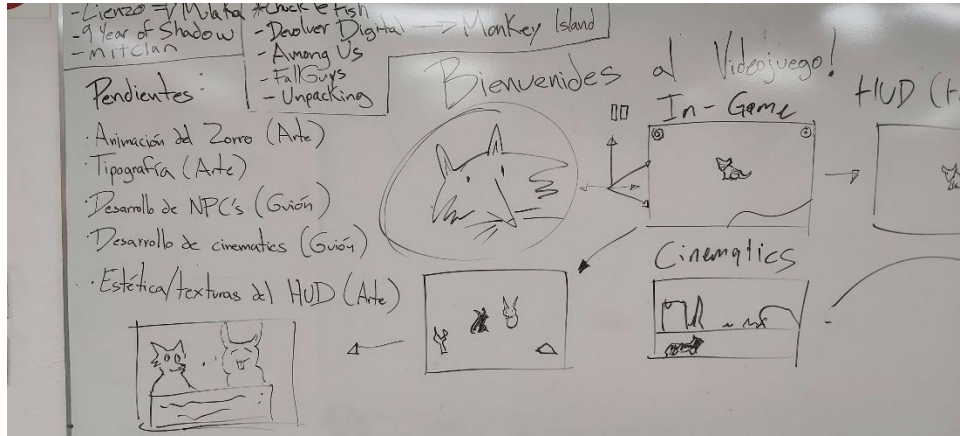 - Lienzo => Mulaka
- 9 Year of Shadow
- Mitclan
*Chuck le Fish
- Devolver Digital → Monkey Island
- Among Us
- FallGuys
- Unpacking
Bienvenides al Videojuego!
Pendientes:
· Animación del Zorro (Arte)
· Tipografía (Arte)
· Desarrollo de NPC's (Guión)
· Desarrollo de cinematics (Guión)
· Estética/texturas del HUD (Arte)
In-Game
HUD (H
Cinematics